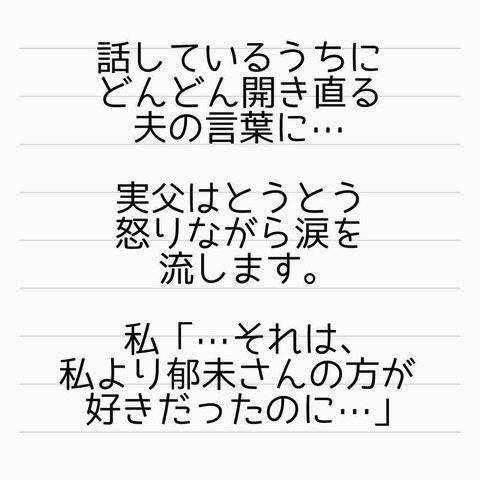 話しているうちに
どんどん開き直る
夫の言葉に…
実父はとうとう
怒りながら涙を
流します。
私「…それは、
私より郁未さんの方が
好きだったのに…」